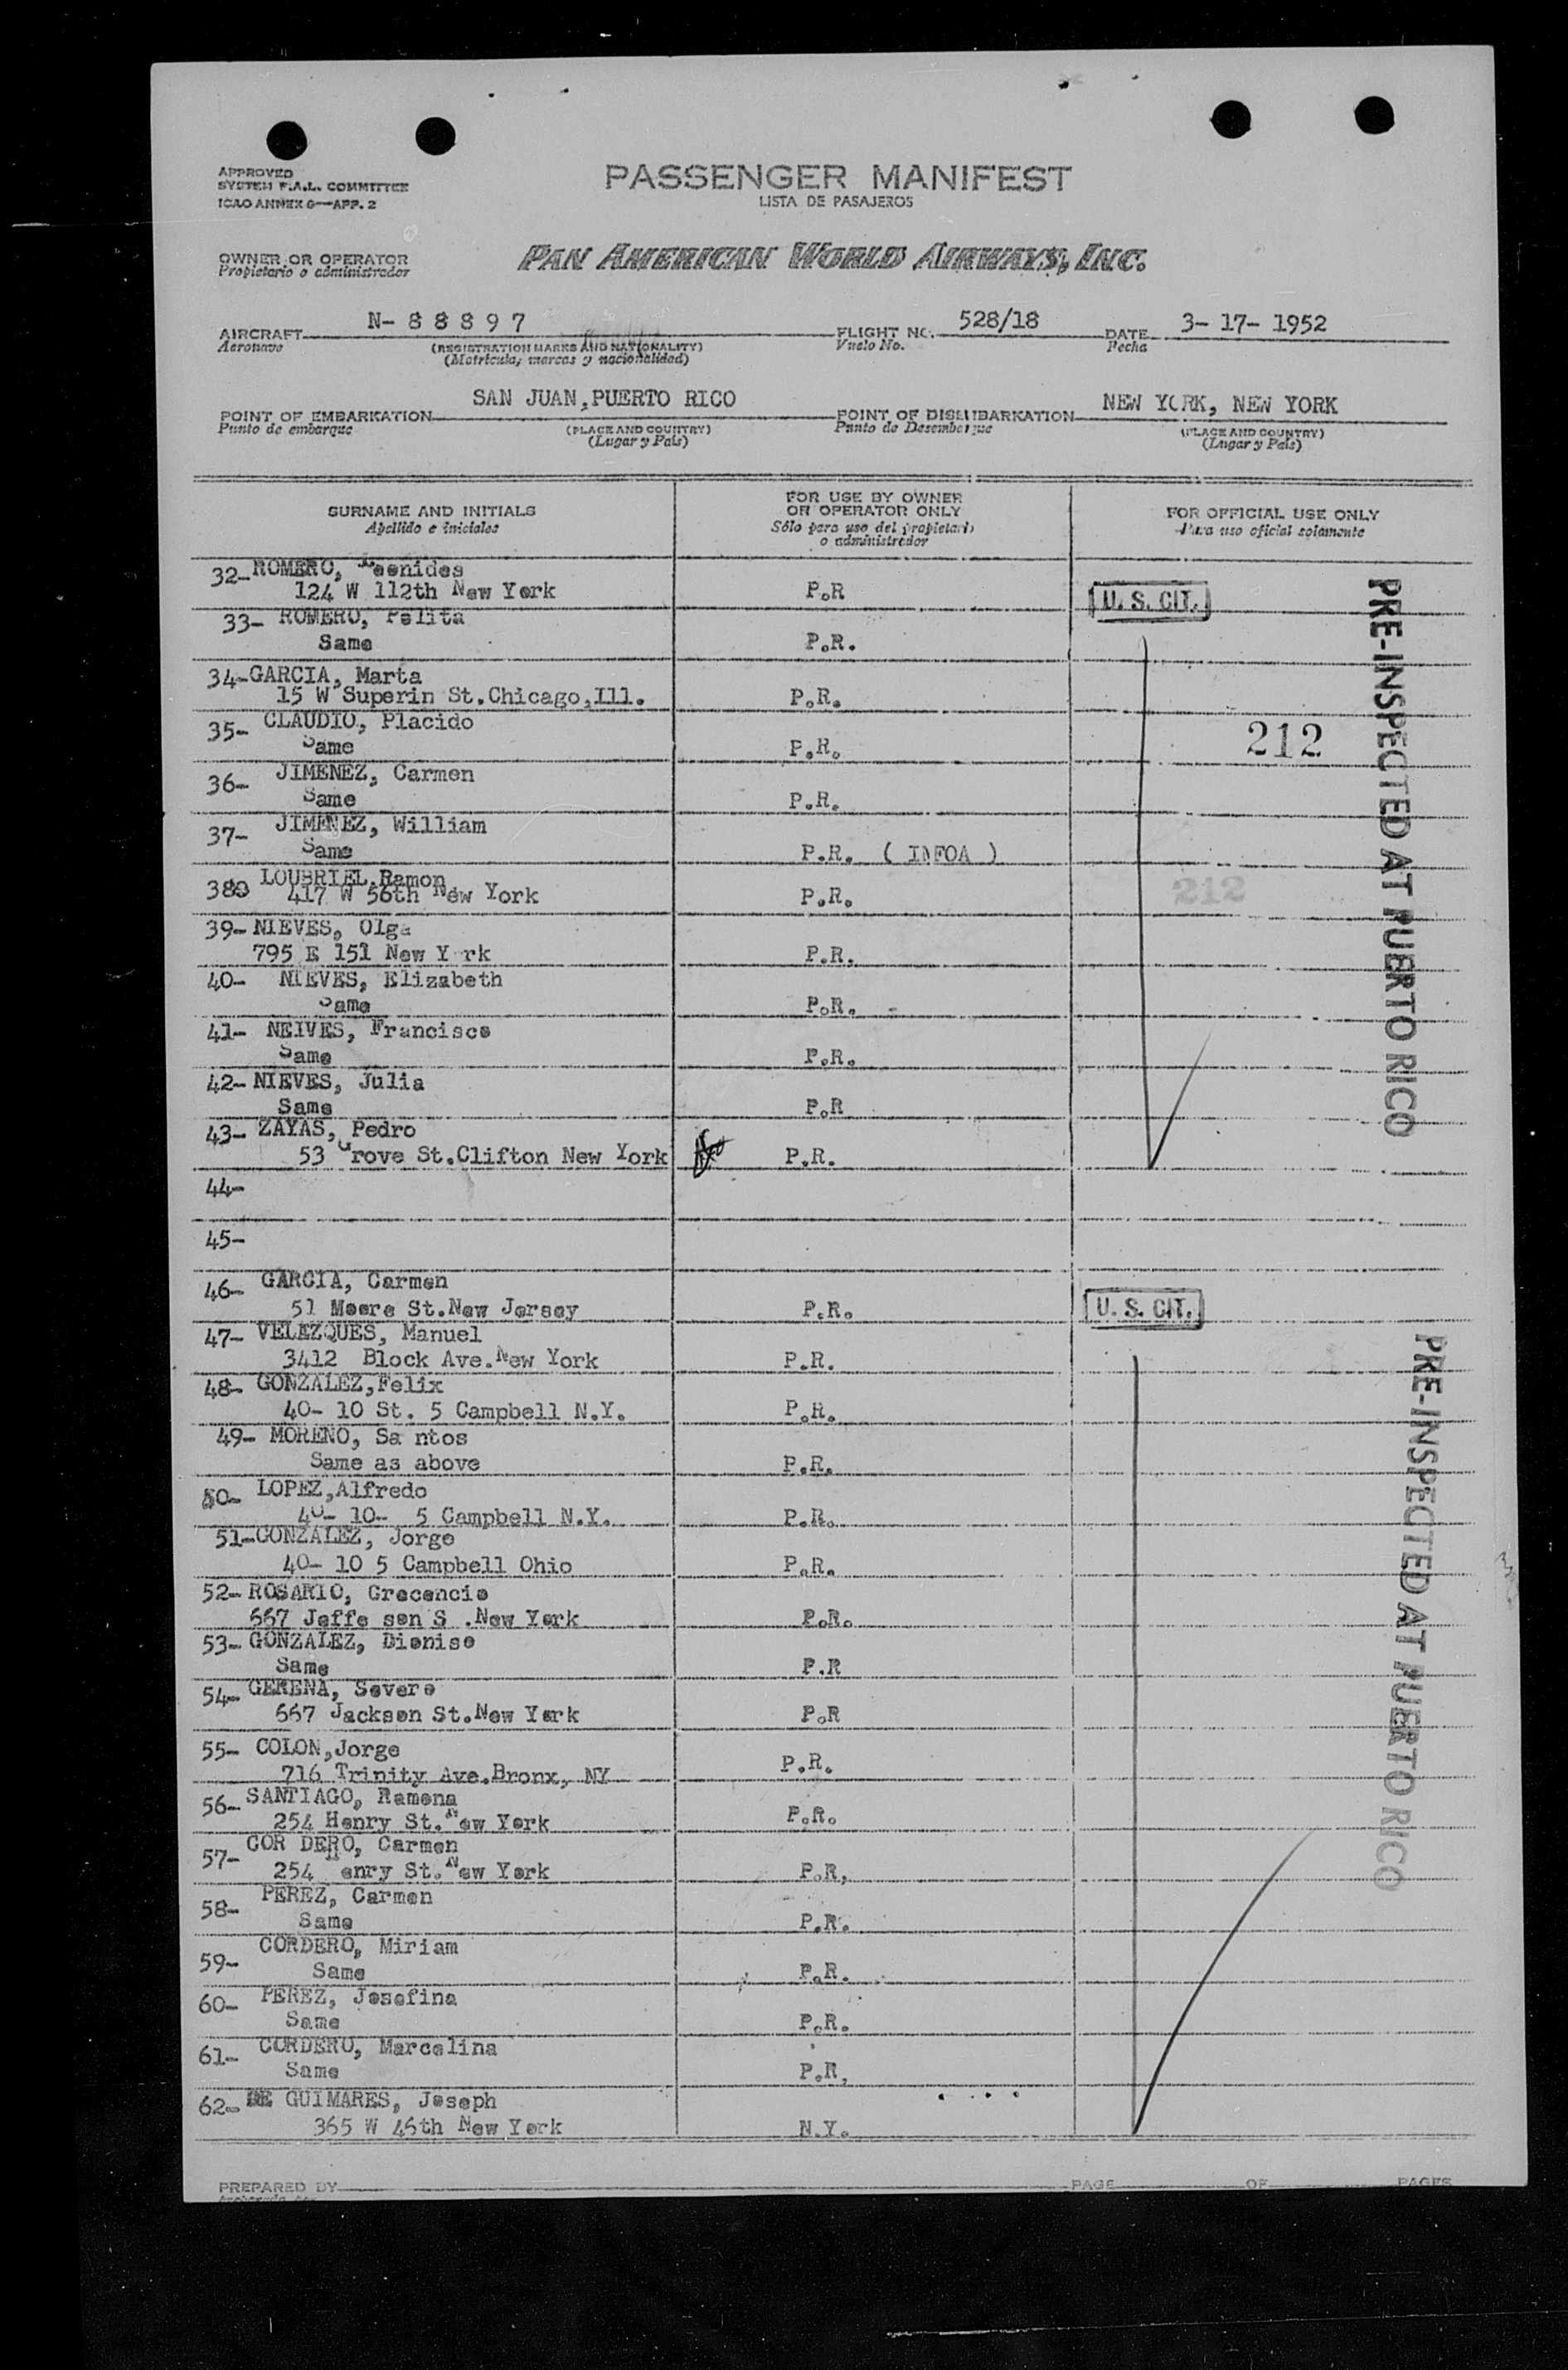 APPROVED
SYSTEM F.A.L. COMMITTEE
ICAO ANNEX 9—APP. 2
PASSENGER MANIFEST
LISTA DE PASAJEROS
OWNER OR OPERATOR
Propietario o administrador
PAN AMERICAN WORLD AIRWAYS, INC.
AIRCRAFT N- 8 8 8 9 7 FLIGHT NO. 528/18 DATE 3- 17- 1952
Aeronave (REGISTRATION MARKS AND NATIONALITY) Vuelo No. Fecha
(Matricula, marcas y nacionalidad)
POINT OF EMBARKATION SAN JUAN, PUERTO RICO POINT OF DISEMBARKATION NEW YORK, NEW YORK
Punto de embarque (PLACE AND COUNTRY) Punto de Desembarque (PLACE AND COUNTRY)
(Lugar y País) (Lugar y País)
SURNAME AND INITIALS FOR USE BY OWNER OR OPERATOR ONLY FOR OFFICIAL USE ONLY
Apellido e iniciales Sólo para uso del propietario o administrador Para uso oficial solamente
32- ROMERO, Leenides
124 W 112th New York P.R U. S. CIT.
33- ROMERO, Felita
Same P.R.
34- GARCIA, Marta
15 W Superin St.Chicago,Ill. P.R.
35- CLAUDIO, Placido
Same P.R. 212
36- JIMENEZ, Carmen
Same P.R.
37- JIMENEZ, William
Same P.R. ( INFOA )
38 LOUBRIEL,Ramon
417 W 56th New York P.R. 212
39- NIEVES, Olga
795 E 151 New Y rk P.R.
40- NIEVES, Elizabeth
Same P.R. -
41- NEIVES, Francisco
Same P.R.
42- NIEVES, Julia
Same P.R
43- ZAYAS, Pedro
53 Grove St.Clifton New York P.R.
44-
45-
46- GARCIA, Carmen
51 Moore St.New Jersey P.R. U. S. CIT.
47- VELEZQUES, Manuel
3412 Block Ave.New York P.R.
48- GONZALEZ,Felix
40- 10 St. 5 Campbell N.Y. P.R.
49- MORENO, Sa ntos
Same as above P.R.
50- LOPEZ,Alfredo
40- 10- 5 Campbell N.Y. P.R.
51- GONZALEZ, Jorge
40- 10 5 Campbell Ohio P.R.
52- ROSARIO, Crecencio
667 Jeffe son S .New York P.R.
53- GONZALEZ, Dioniso
Same P.R
54- GERENA, Severo
667 Jackson St.New York P.R
55- COLON,Jorge
716 Trinity Ave.Bronx, NY P.R.
56- SANTIAGO, Ramona
254 Henry St.New York P.R.
57- COR DERO, Carmen
254 Henry St.New York P.R,
58- PEREZ, Carmen
Same P.R.
59- CORDERO, Miriam
Same P.R.
60- PEREZ, Josefina
Same P.R.
61- CORDERO, Marcelina
Same P.R,
62- DE GUIMARES, Joseph
365 W 46th New York N.Y.
PRE-INSPECTED AT PUERTO RICO
PRE-INSPECTED AT PUERTO RICO
PREPARED BY PAGE OF PAGES